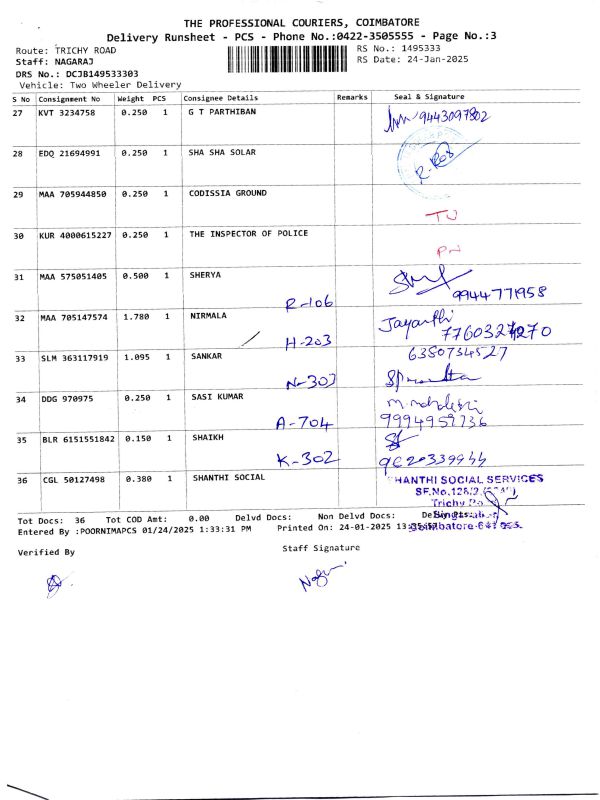 THE PROFESSIONAL COURIERS, COIMBATORE
Delivery Runsheet - PCS - Phone No.:0422-3505555 - Page No.:3
Route: TRICHY ROAD RS No.: 1495333
Staff: NAGARAJ RS Date: 24-Jan-2025
DRS No.: DCJB149533303
Vehicle: Two Wheeler Delivery
S No Consignment No Weight PCS Consignee Details Remarks Seal & Signature
27 KVT 3234758 0.250 1 G T PARTHIBAN 9443097802
28 EDQ 21694991 0.250 1 SHA SHA SOLAR
29 MAA 705944850 0.250 1 CODISSIA GROUND
30 KUR 4000615227 0.250 1 THE INSPECTOR OF POLICE
31 MAA 575051405 0.500 1 SHERYA
R-106 9944771958
32 MAA 705147574 1.780 1 NIRMALA Jayanthi
H-203
33 SLM 363117919 1.095 1 SANKAR 6380734527
N-303
34 DDG 970975 0.250 1 SASI KUMAR
A-704 9994959736
35 BLR 6151551842 0.150 1 SHAIKH
K-302
36 CGL 50127498 0.380 1 SHANTHI SOCIAL HANTHI SOCIAL SERVICES
Tot Docs: 36 Tot COD Amt: 0.00 Delvd Docs: Non Delvd Docs:
Entered By :POORNIMAPCS 01/24/2025 1:33:31 PM Printed On: 24-01-2025
Verified By Staff Signature